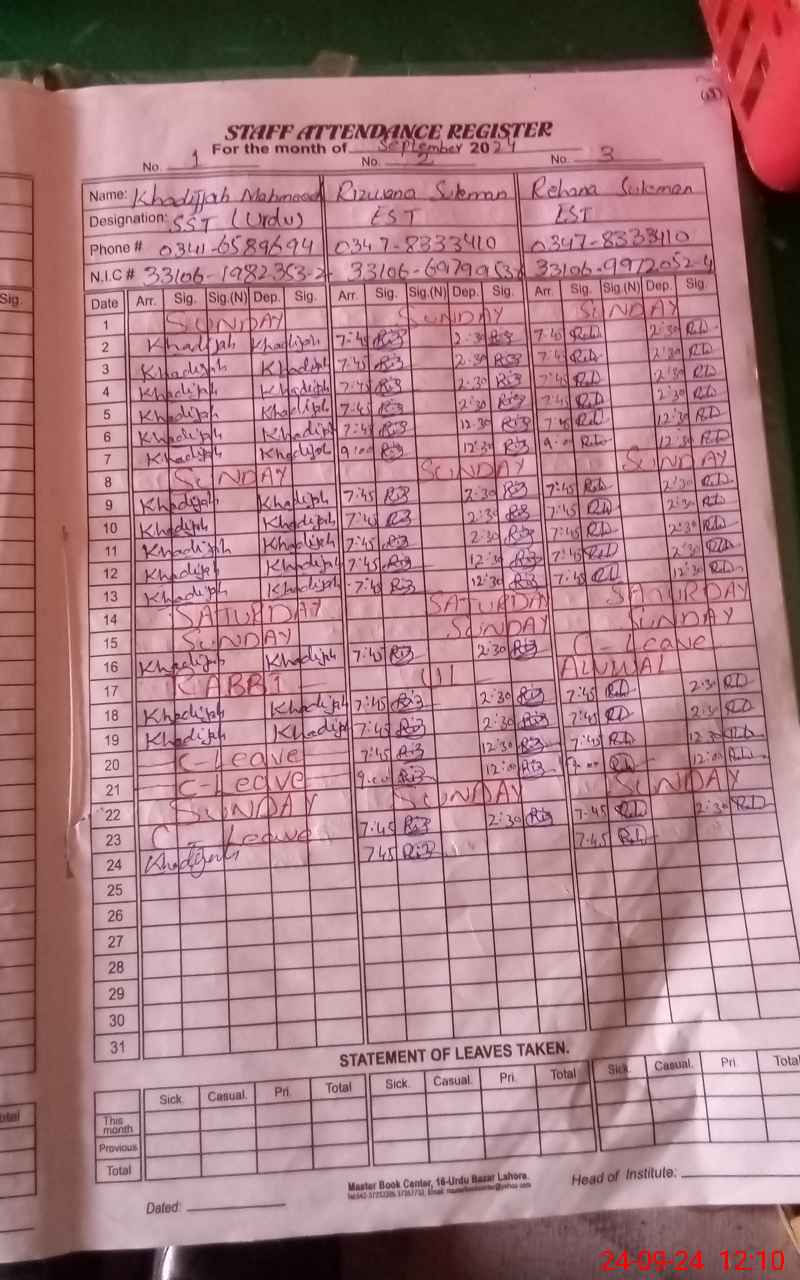 STAFF ATTENDANCE REGISTER
For the month of September 2024
No. 1 No. 2 No. 3
Name: Khadijah Mahmood Rizwana Suleman Rehana Suleman
Designation: SST (Urdu) EST EST
Phone # 0341-6589694 0347-8333410 0347-8333410
N.I.C # 33106-1982353-2 33106-6979953 33106-9972052-4
Date Arr. Sig. Sig.(N) Dep. Sig. Arr. Sig. Sig.(N) Dep. Sig. Arr. Sig. Sig.(N) Dep. Sig.
1 SUNDAY SUNDAY SUNDAY
2 Khadijah Khadijah 7:45 Riz 2:30 Riz 7:45 RD 2:30 RD
3 Khadijah Khadijah 7:45 Riz 2:30 Riz 7:45 RD 2:30 RD
4 Khadijah Khadijah 7:45 Riz 2:30 Riz 7:45 RD 2:30 RD
5 Khadijah Khadijah 7:45 Riz 2:30 Riz 7:45 RD 2:30 RD
6 Khadijah Khadijah 7:45 Riz 12:30 Riz 7:45 RD 12:30 RD
7 Khadijah Khadijah 9:00 Riz 12:30 Riz 9:00 RD 12:30 RD
8 SUNDAY SUNDAY SUNDAY
9 Khadijah Khadijah 7:45 Riz 2:30 Riz 7:45 RD 2:30 RD
10 Khadijah Khadijah 7:45 Riz 2:30 Riz 7:45 RD 2:30 RD
11 Khadijah Khadijah 7:45 Riz 2:30 Riz 7:45 RD 2:30 RD
12 Khadijah Khadijah 7:45 Riz 12:30 Riz 7:45 RD 2:30 RD
13 Khadijah Khadijah 7:45 Riz 12:30 Riz 7:45 RD 12:30 RD
14 SATURDAY SATURDAY SATURDAY
15 SUNDAY SUNDAY SUNDAY
16 Khadijah Khadijah 7:45 Riz 2:30 Riz C-Leave
17 RABBI UL ALWWAL
18 Khadijah Khadijah 7:45 Riz 2:30 Riz 7:45 RD 2:30 RD
19 Khadijah Khadijah 7:45 Riz 2:30 Riz 7:45 RD 2:30 RD
20 C-Leave 7:45 Riz 12:30 Riz 7:45 RD 12:30 RD
21 C-Leave 9:00 Riz 12:00 Riz 9:00 RD 12:00 RD
22 SUNDAY SUNDAY SUNDAY
23 C-Leave 7:45 Riz 2:30 Riz 7:45 RD 2:30 RD
24 Khadijah 7:45 Riz 7:45 RD
25
26
27
28
29
30
31
STATEMENT OF LEAVES TAKEN.
Sick. Casual. Pri. Total Sick. Casual. Pri. Total Sick. Casual. Pri. Total
This month
Previous
Total
Master Book Center, 16-Urdu Bazar Lahore.
Dated: Head of Institute:
24-09-24 12:10